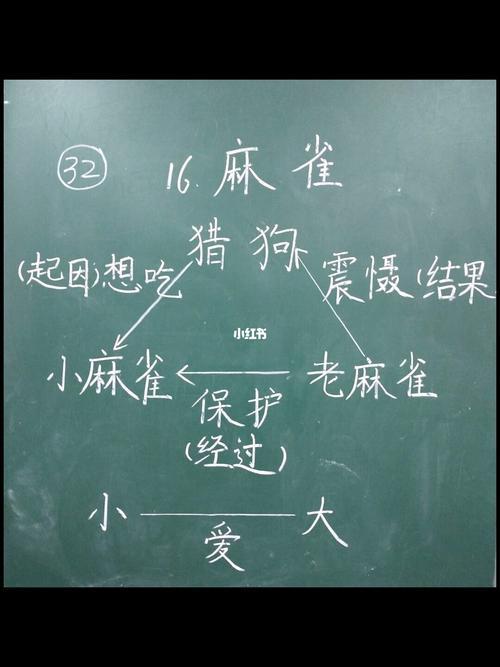 32 16.麻雀
猎狗
(起因)想吃 震慑(结果
小红书
小麻雀 老麻雀
保护
(经过)
小 大
爱